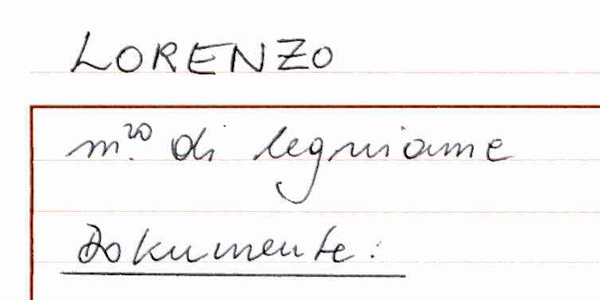 LORENZO
m.ro di legniame
Dokumente: